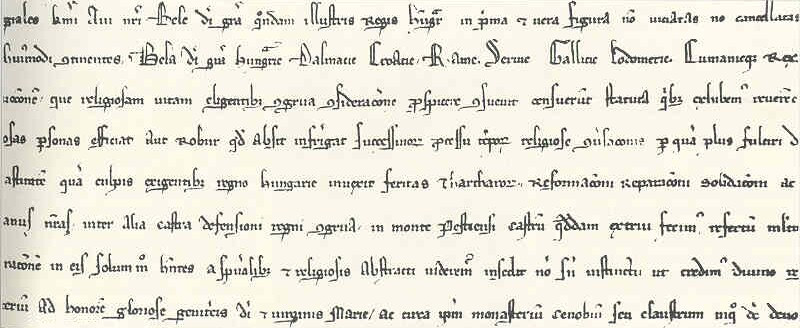 giales kmi Aui nri Bele di gra qondam illustris Regis hungar in pma et vera figura no viciatas no cancellatas
huiusmodi continentes. Bela di gra hungarie Dalmacie Croacie. Rame. Servie Gallicie Lodomerie. Cumanieque Rex
que religiosam vitam eligentibus congrua consideracione prospicere consuevit censuerunt statuta quibus celibem
personas efficiat Aut Robur qd Absit infringat successivorum processu temporum religiose p qua plus fulciri d
qua culpis exigentibus regno hungarie invexit feritas thartharorum. Reformacioni reparacioni solidacioni ac
inter Alia castra defensioni regni congrua in monte Pestiensi castrum quoddam extrui fecimus refectum
in eis solummodo habentes a spiritualibus et religiosis Abstracti videremur insedit nobis sicut instinctu ut credimus divino
Ad honorem gloriose genitricis di et virginis Marie Ac cura ipm monasterium cenobium seu claustrum